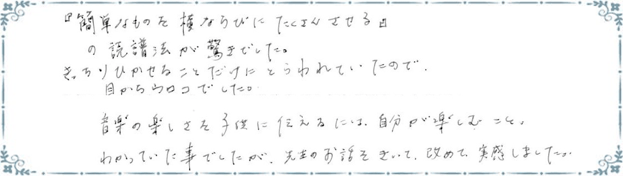 『簡単なものを横ならびにたくさんさせる』
の読譜法が驚きでした。
きっちりひかせることだけにとらわれていたので、
目からウロコでした。
音楽の楽しさを子供に伝えるには、自分が楽しむこと。
わかっていた事でしたが、先生のお話をきいて、改めて実感しました。